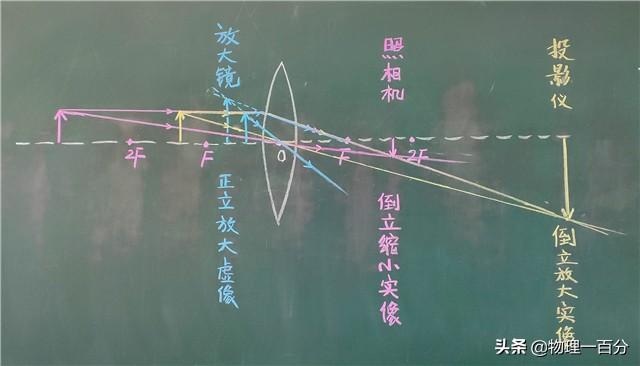 放大镜
照相机
投影仪
2F
F
O
F
2F
正立放大虚像
倒立缩小实像
倒立放大实像
头条 @物理一百分